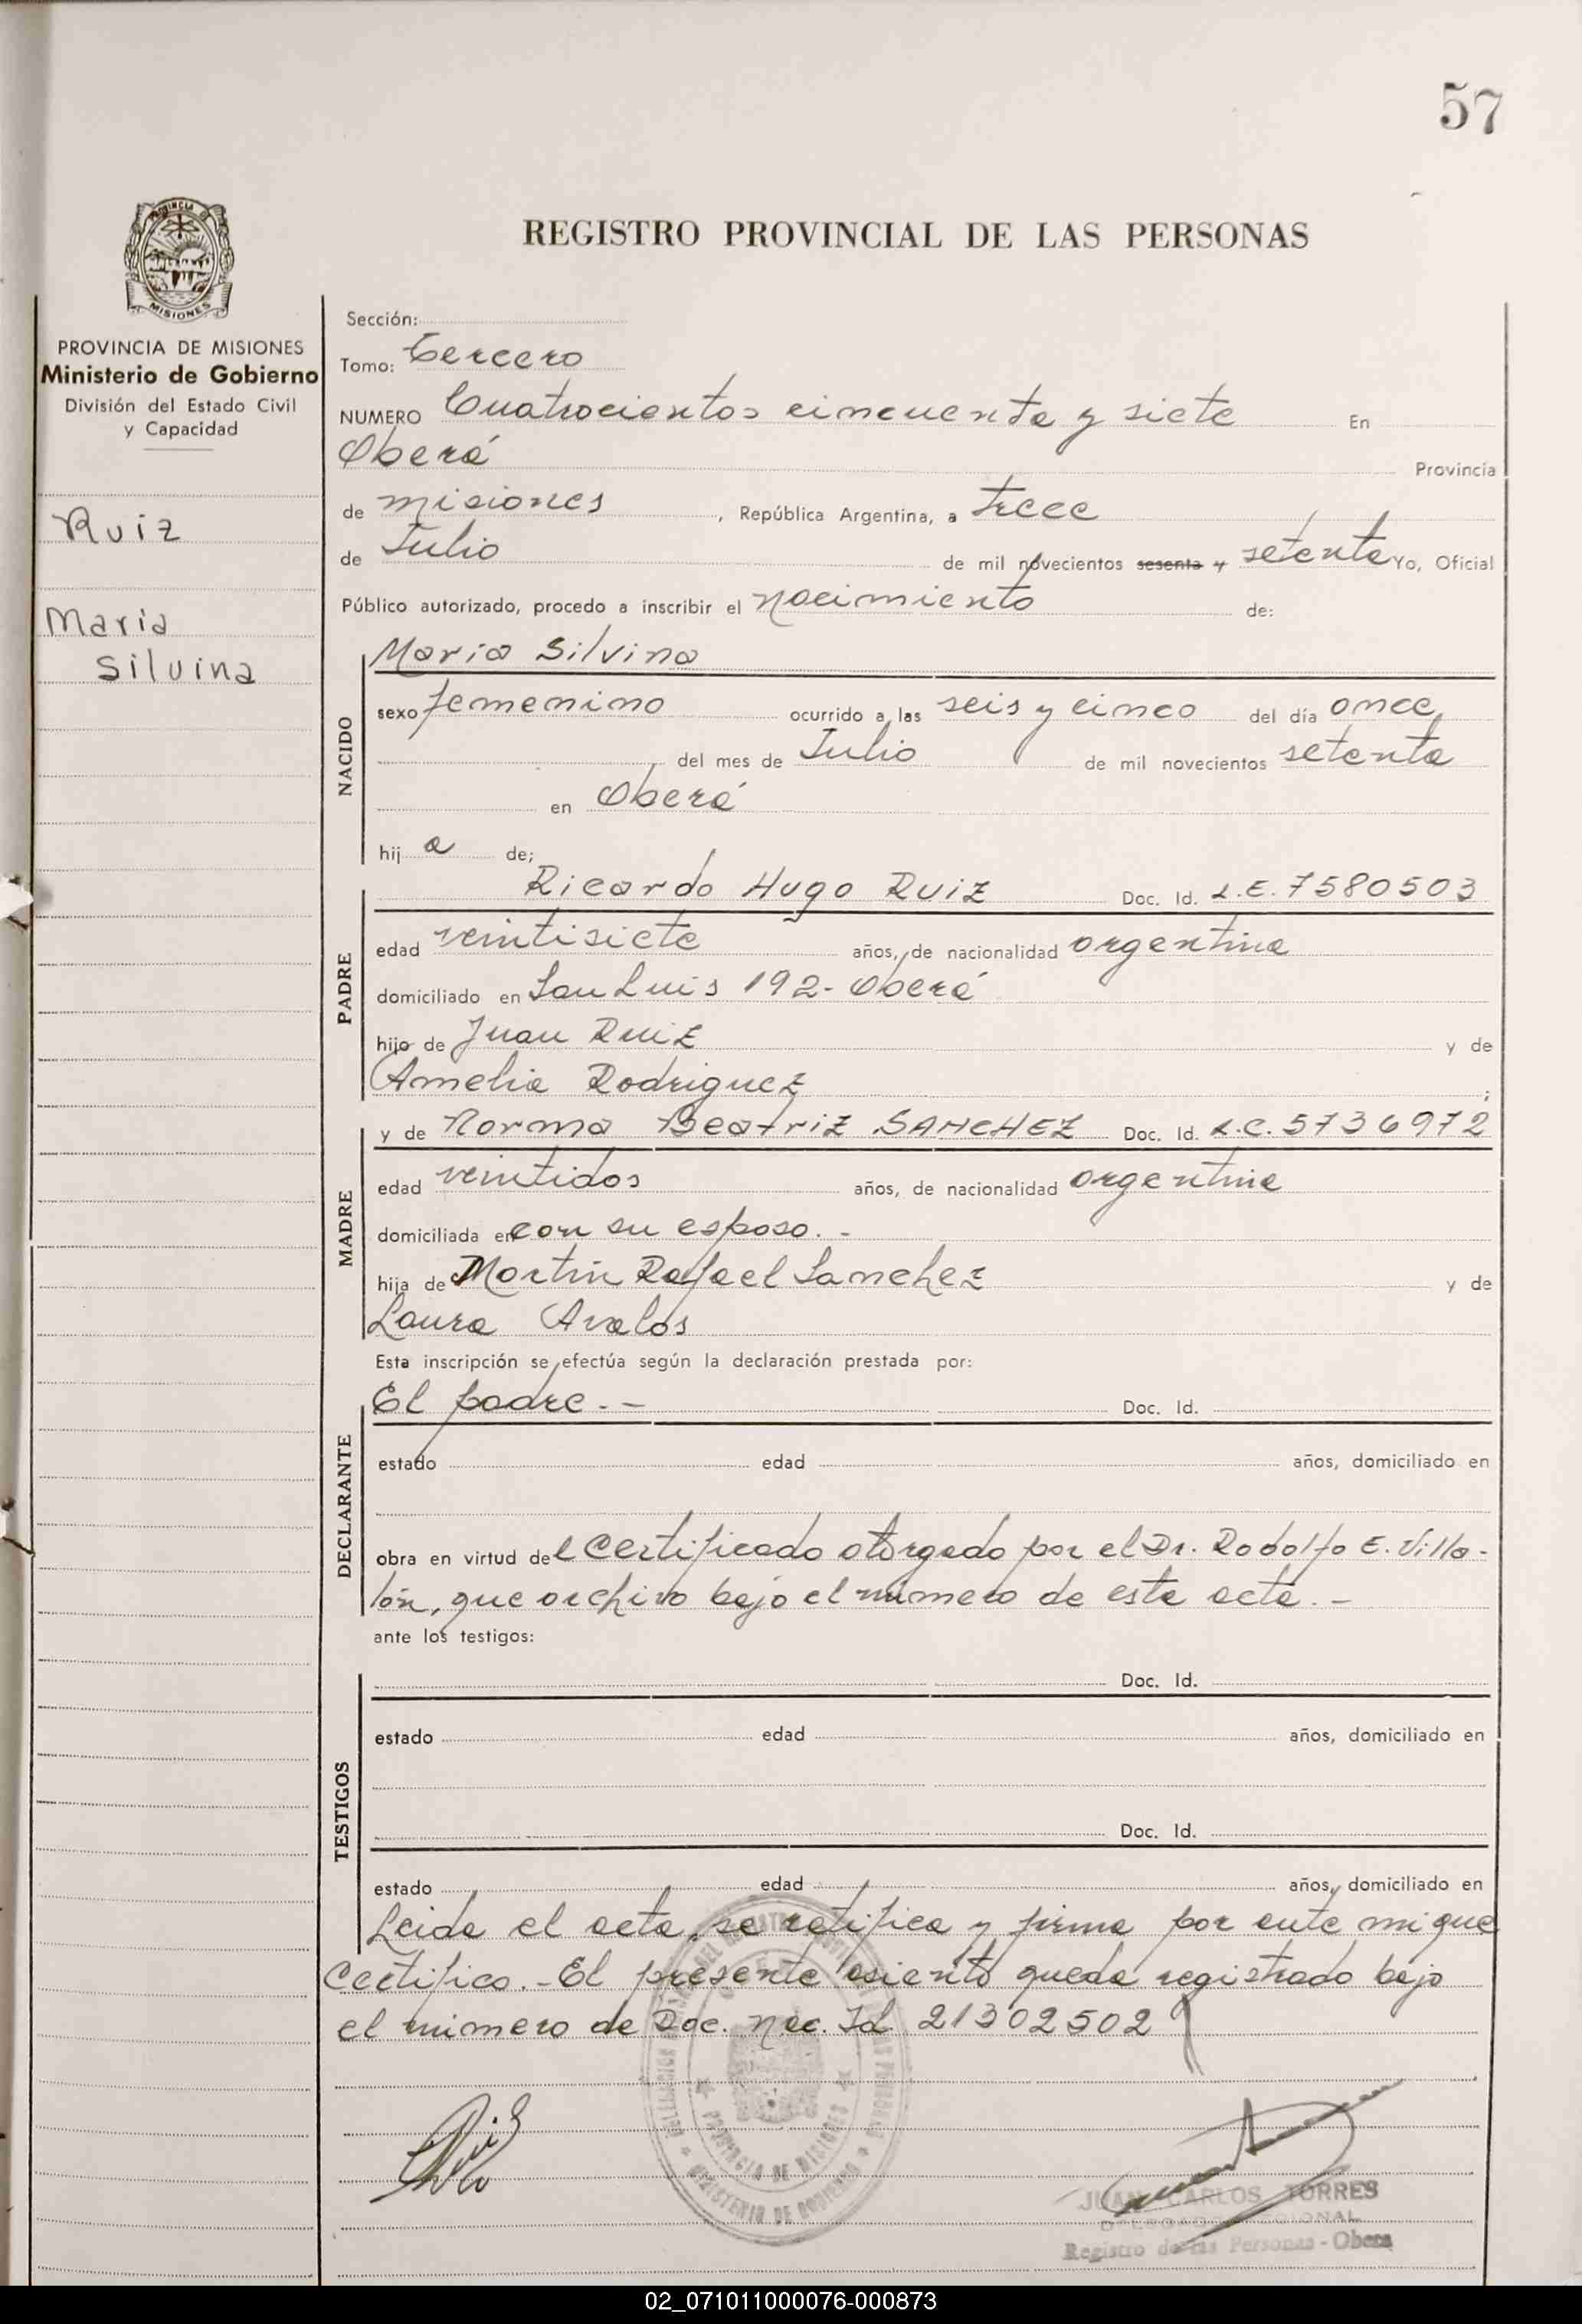 57
REGISTRO PROVINCIAL DE LAS PERSONAS
PROVINCIA DE
MISIONES
PROVINCIA DE MISIONES
Ministerio de Gobierno
División del Estado Civil
y Capacidad
Ruiz
Maria
Silvina
Sección:
Tomo: Tercero
NUMERO Cuatrocientos cincuenta y siete En
Oberá Provincia
de Misiones, República Argentina, a trece
de Julio de mil novecientos sesenta y setenta Yo, Oficial
Público autorizado, procedo a inscribir el nacimiento de:
NACIDO
Maria Silvina
sexo femenino ocurrido a las seis y cinco del día once
del mes de Julio de mil novecientos setenta
en Oberá
hij a de;
PADRE
Ricardo Hugo Ruiz Doc. Id. L.E. 7580503
edad veintisiete años, de nacionalidad argentina
domiciliado en San Luis 192- Oberá
hijo de Juan Ruiz y de
Amelia Rodriguez ;
MADRE
y de Norma Beatriz SANCHEZ Doc. Id. L.C. 5736972
edad veintidos años, de nacionalidad argentina
domiciliada en con su esposo. -
hija de Martin Rafael Sanchez y de
Laura Avalos
Esta inscripción se efectúa según la declaración prestada por:
DECLARANTE
El padre. - Doc. Id.
estado edad años, domiciliado en
obra en virtud del certificado otorgado por el Dr. Rodolfo E. Villa-
lón, que archivo bajo el número de esta acta. -
ante los testigos:
TESTIGOS
Doc. Id.
estado edad años, domiciliado en
Doc. Id.
estado edad años, domiciliado en
Leida el acta, se ratifica y firma por ante mi que
certifico. - El presente asiento queda registrado bajo
el número de Doc. Nac. Id. 21302502
PROVINCIA DE MISIONES
MINISTERIO DE GOBIERNO
JUAN CARLOS TORRES
DELEGADO REGIONAL
Registro de las Personas - Obera
02_071011000076-000873